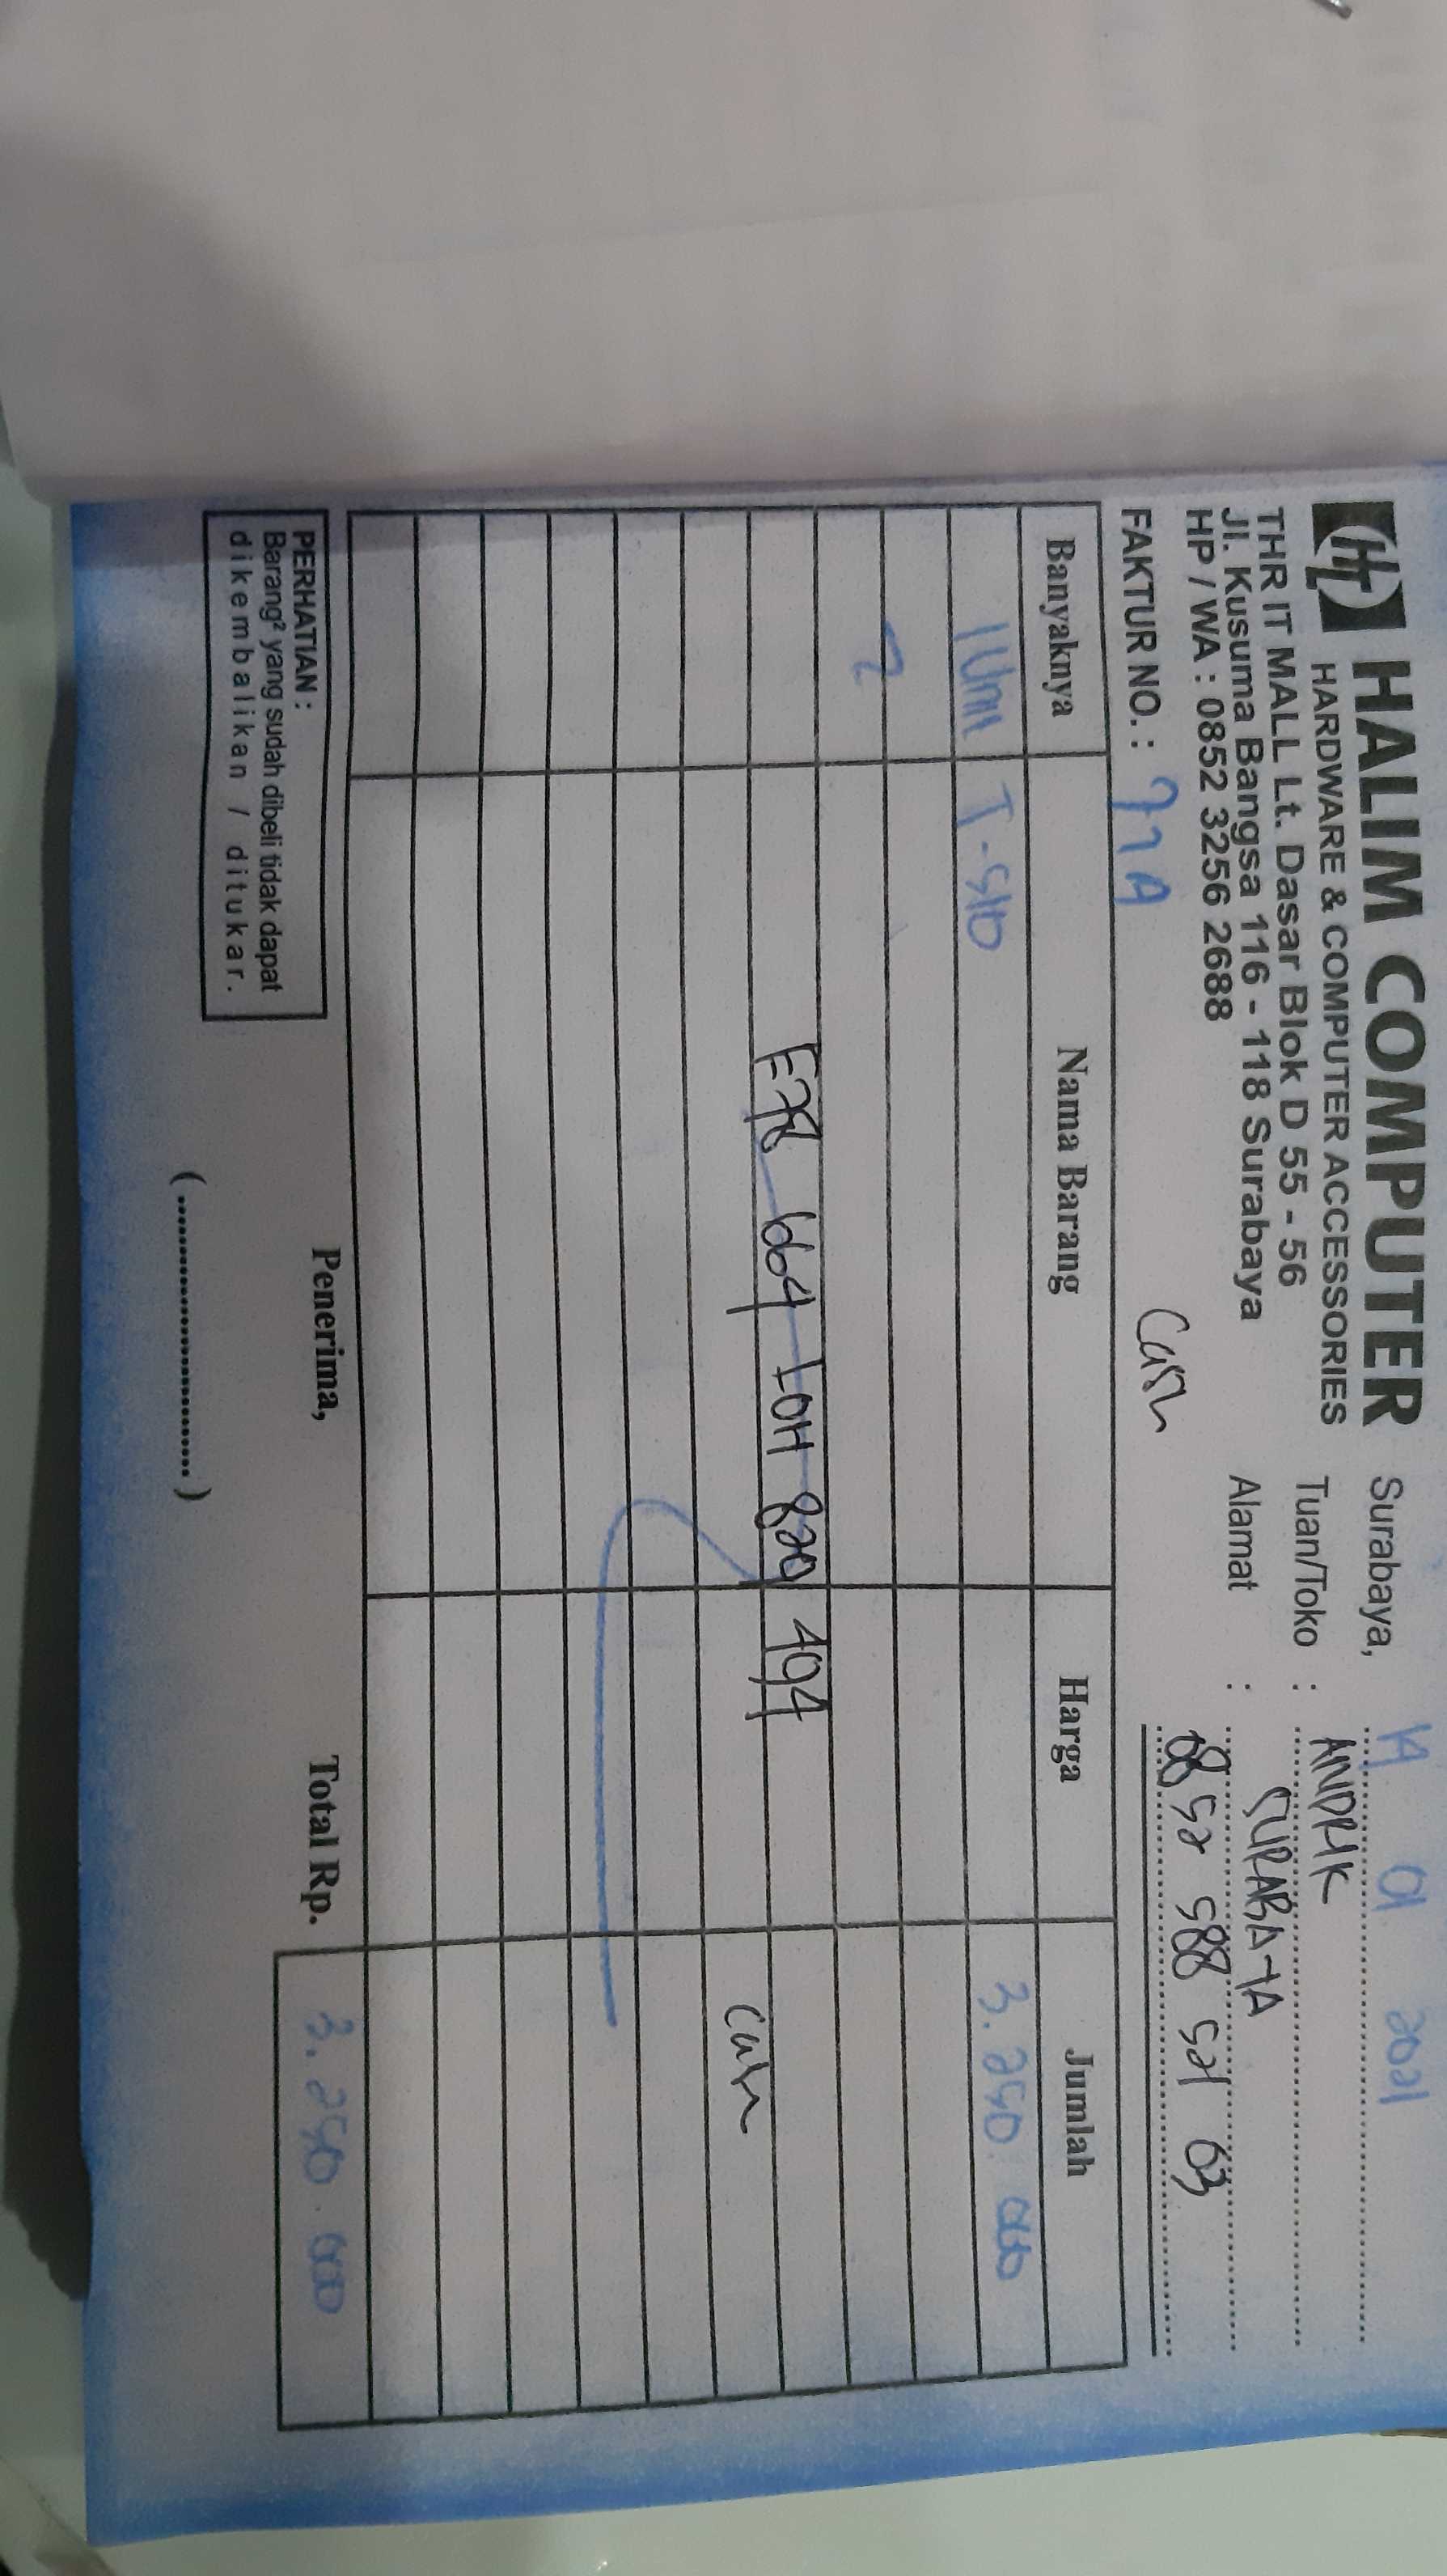 HT HALIM COMPUTER
HARDWARE & COMPUTER ACCESSORIES
THR IT MALL Lt. Dasar Blok D 55 - 56
Jl. Kusuma Bangsa 116 - 118 Surabaya
HP / WA : 0852 3256 2688
Surabaya, 14 01 2021
Tuan/Toko : ANDRIK
Alamat : SURABAYA
08 52 588 521 63
FAKTUR NO. : Cash
Banyaknya Nama Barang Harga Jumlah
1 Unit T-510 3.250.000
820 494
Cash
PERHATIAN :
Barang² yang sudah dibeli tidak dapat
dikembalikan / ditukar.
Penerima,
(........................)
Total Rp. 3.250.000